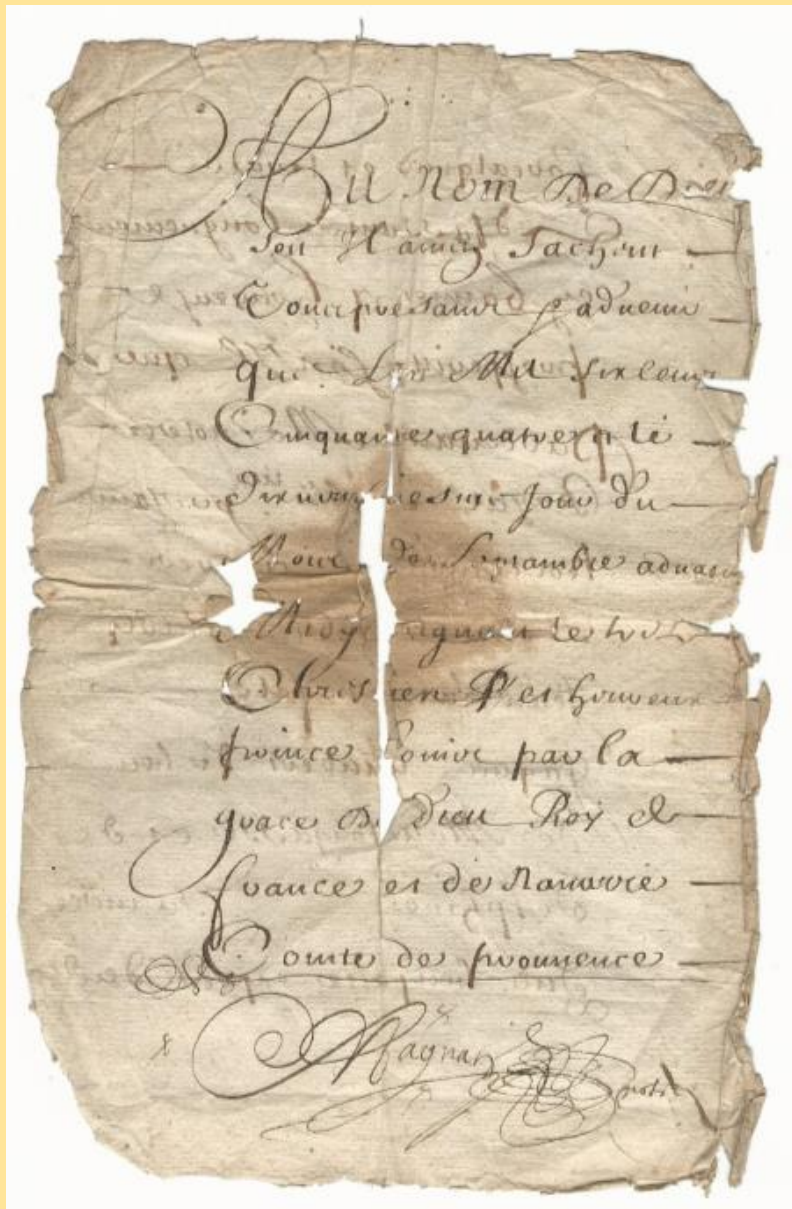 Au nom De Dieu
soit Il amen Sachent
Tous presant & aduenir
que Lan Mil six Cens
Cinquante quatre et le
dixneufviesme Jour du
Mois de Septambre aduant
Midy Regnant le tres
Chrestien & et heureux
prince Louis par la
grace De dieu Roy de
france et de Nauarre
Comte de prouuence
Magnan